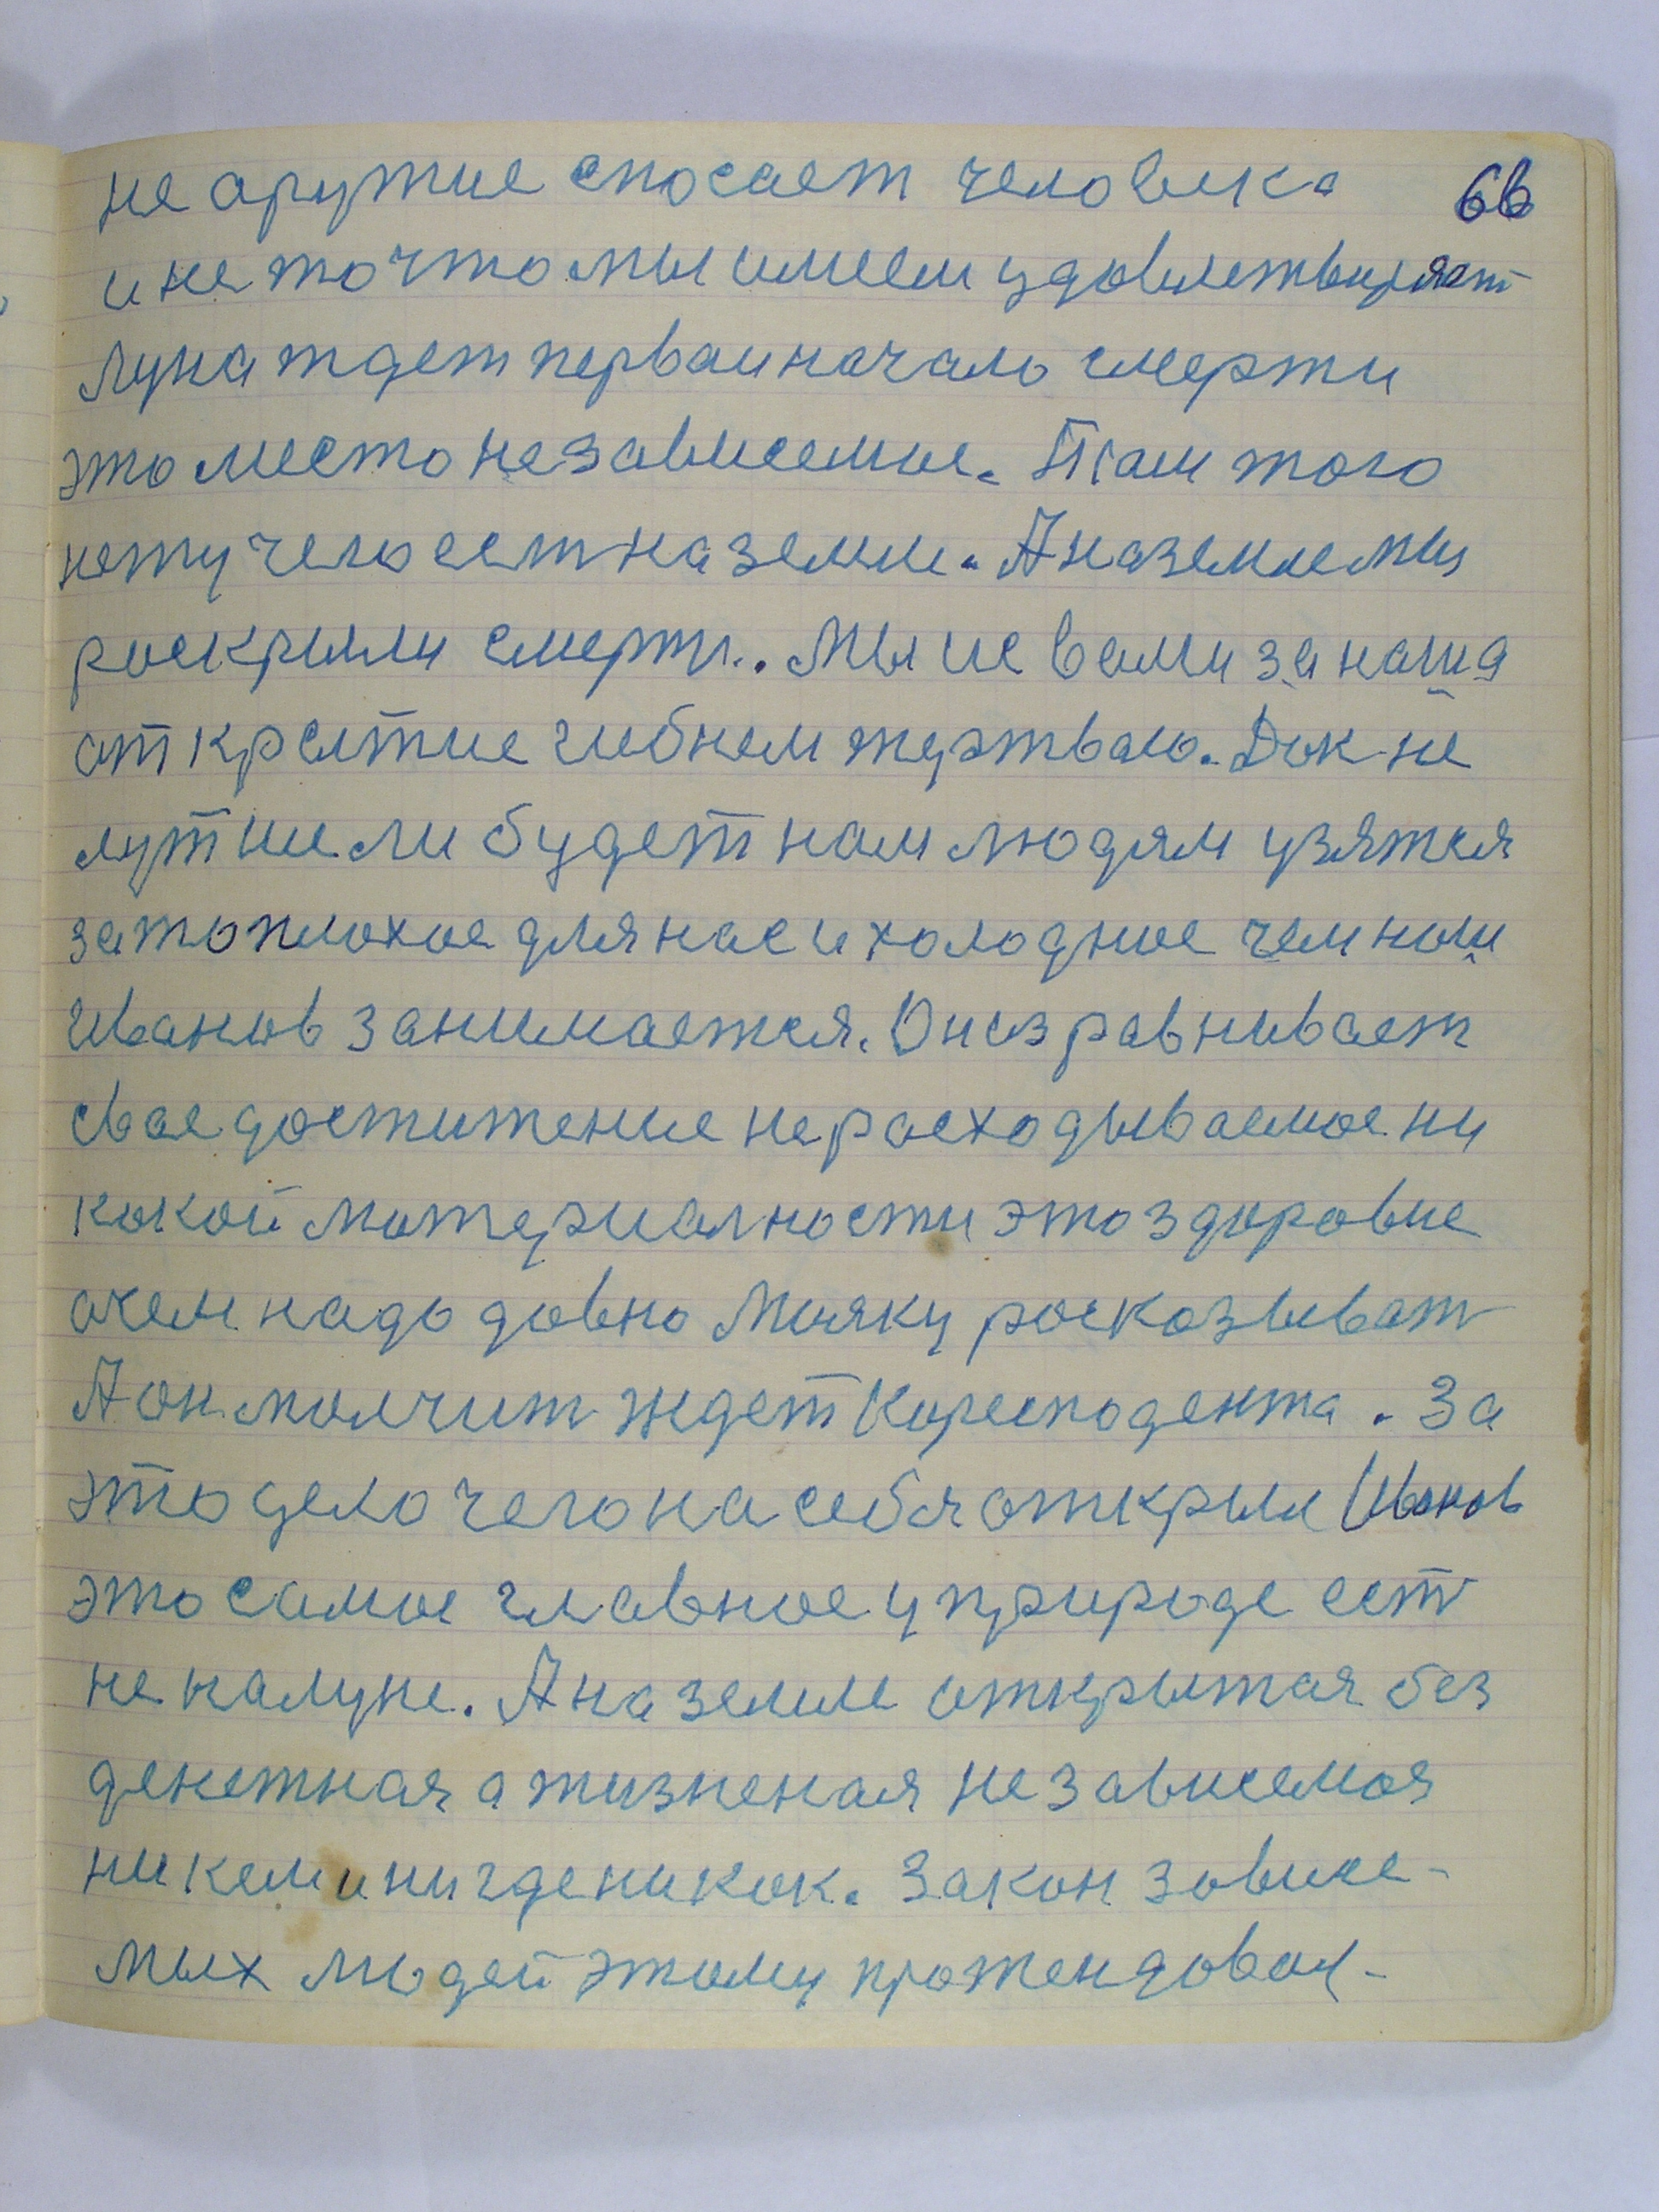 не аружие спосает человика 66
и не то что мы имеем удовлетвиряет
луна ждет перваи начало смерти
это место независемие. Там того
нету чего ест на земли. А на земле мы
роскрыли смерт. Мы ис вами за наша
открытие гибнем жертваю. Док не
лутше ли будет нам людям узятся
за то плохое для нас и холодное чем наш
Иванов занимается. Он изравнивает
свае достижение не расходываемое ни
какой материалности это здоровие
о чем надо довно Маяку росказыват
А он молчит ждет Коресподента. За
это дело чего на себя открыл Иванов
это самое главное у природе ест
не на луне. А на земле открытая без
денежная а жизненая независемая
ни кем и ни где никак. Закон зовисе-
мых людей этому протендовал-